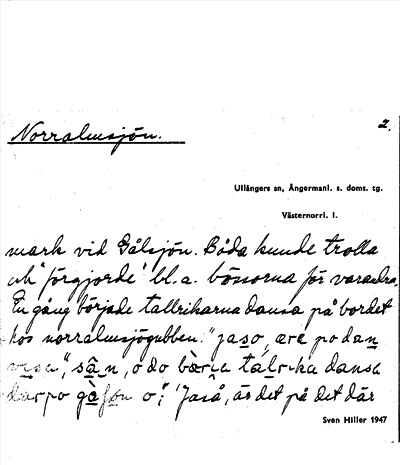 Norralmsjön.
2.
Ullångers sn, Ångermanl. s. doms. tg.
Västernorrl. l.
mark vid Gålsjön. Båda kunde trolla
och "förgjorde" bl.a. bössorna för varandra.
En gång började tallrikarna dansa på bordet
hos norralmsjögubben. "jaso, ære po dan
visa", sân, o do bæria talrika dansa
dærpo o". "Jaså, är det på det där
Sven Hiller 1947